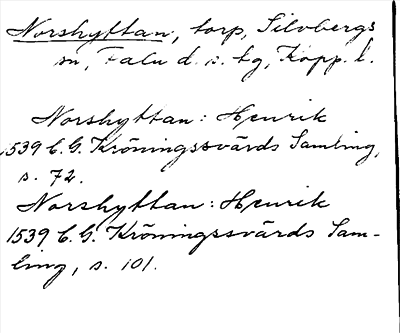 Norshyttan, torp, Silvbergs
sn, Falu d. s. tg, Kopp. l.
Norshyttan: Henrik
1539 C. G. Kröningssvärds Samling,
s. 72.
Norshyttan: Henrik
1539 C. G. Kröningssvärds Sam-
ling, s. 101.